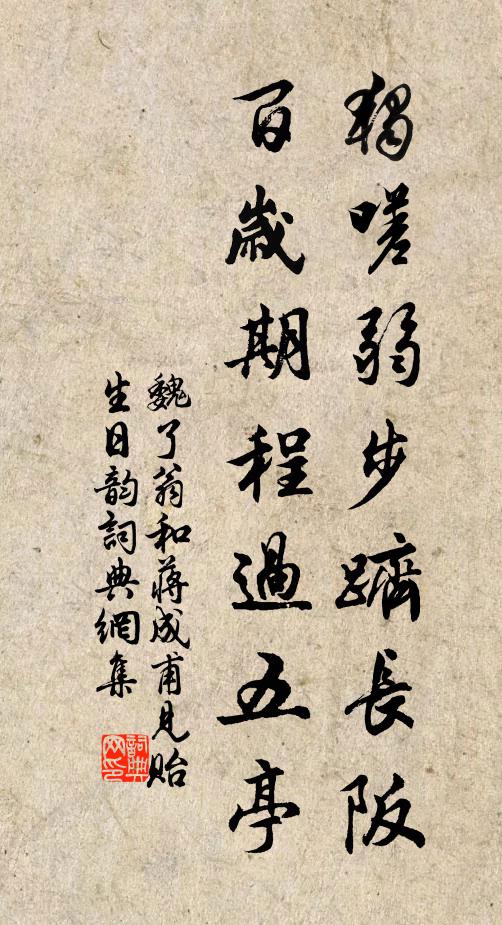 獨嗟弱步躋長阪
百歲期程過五亭
魏了翁和蔣成甫見貽
生日韵詞典網集
詞典
网印